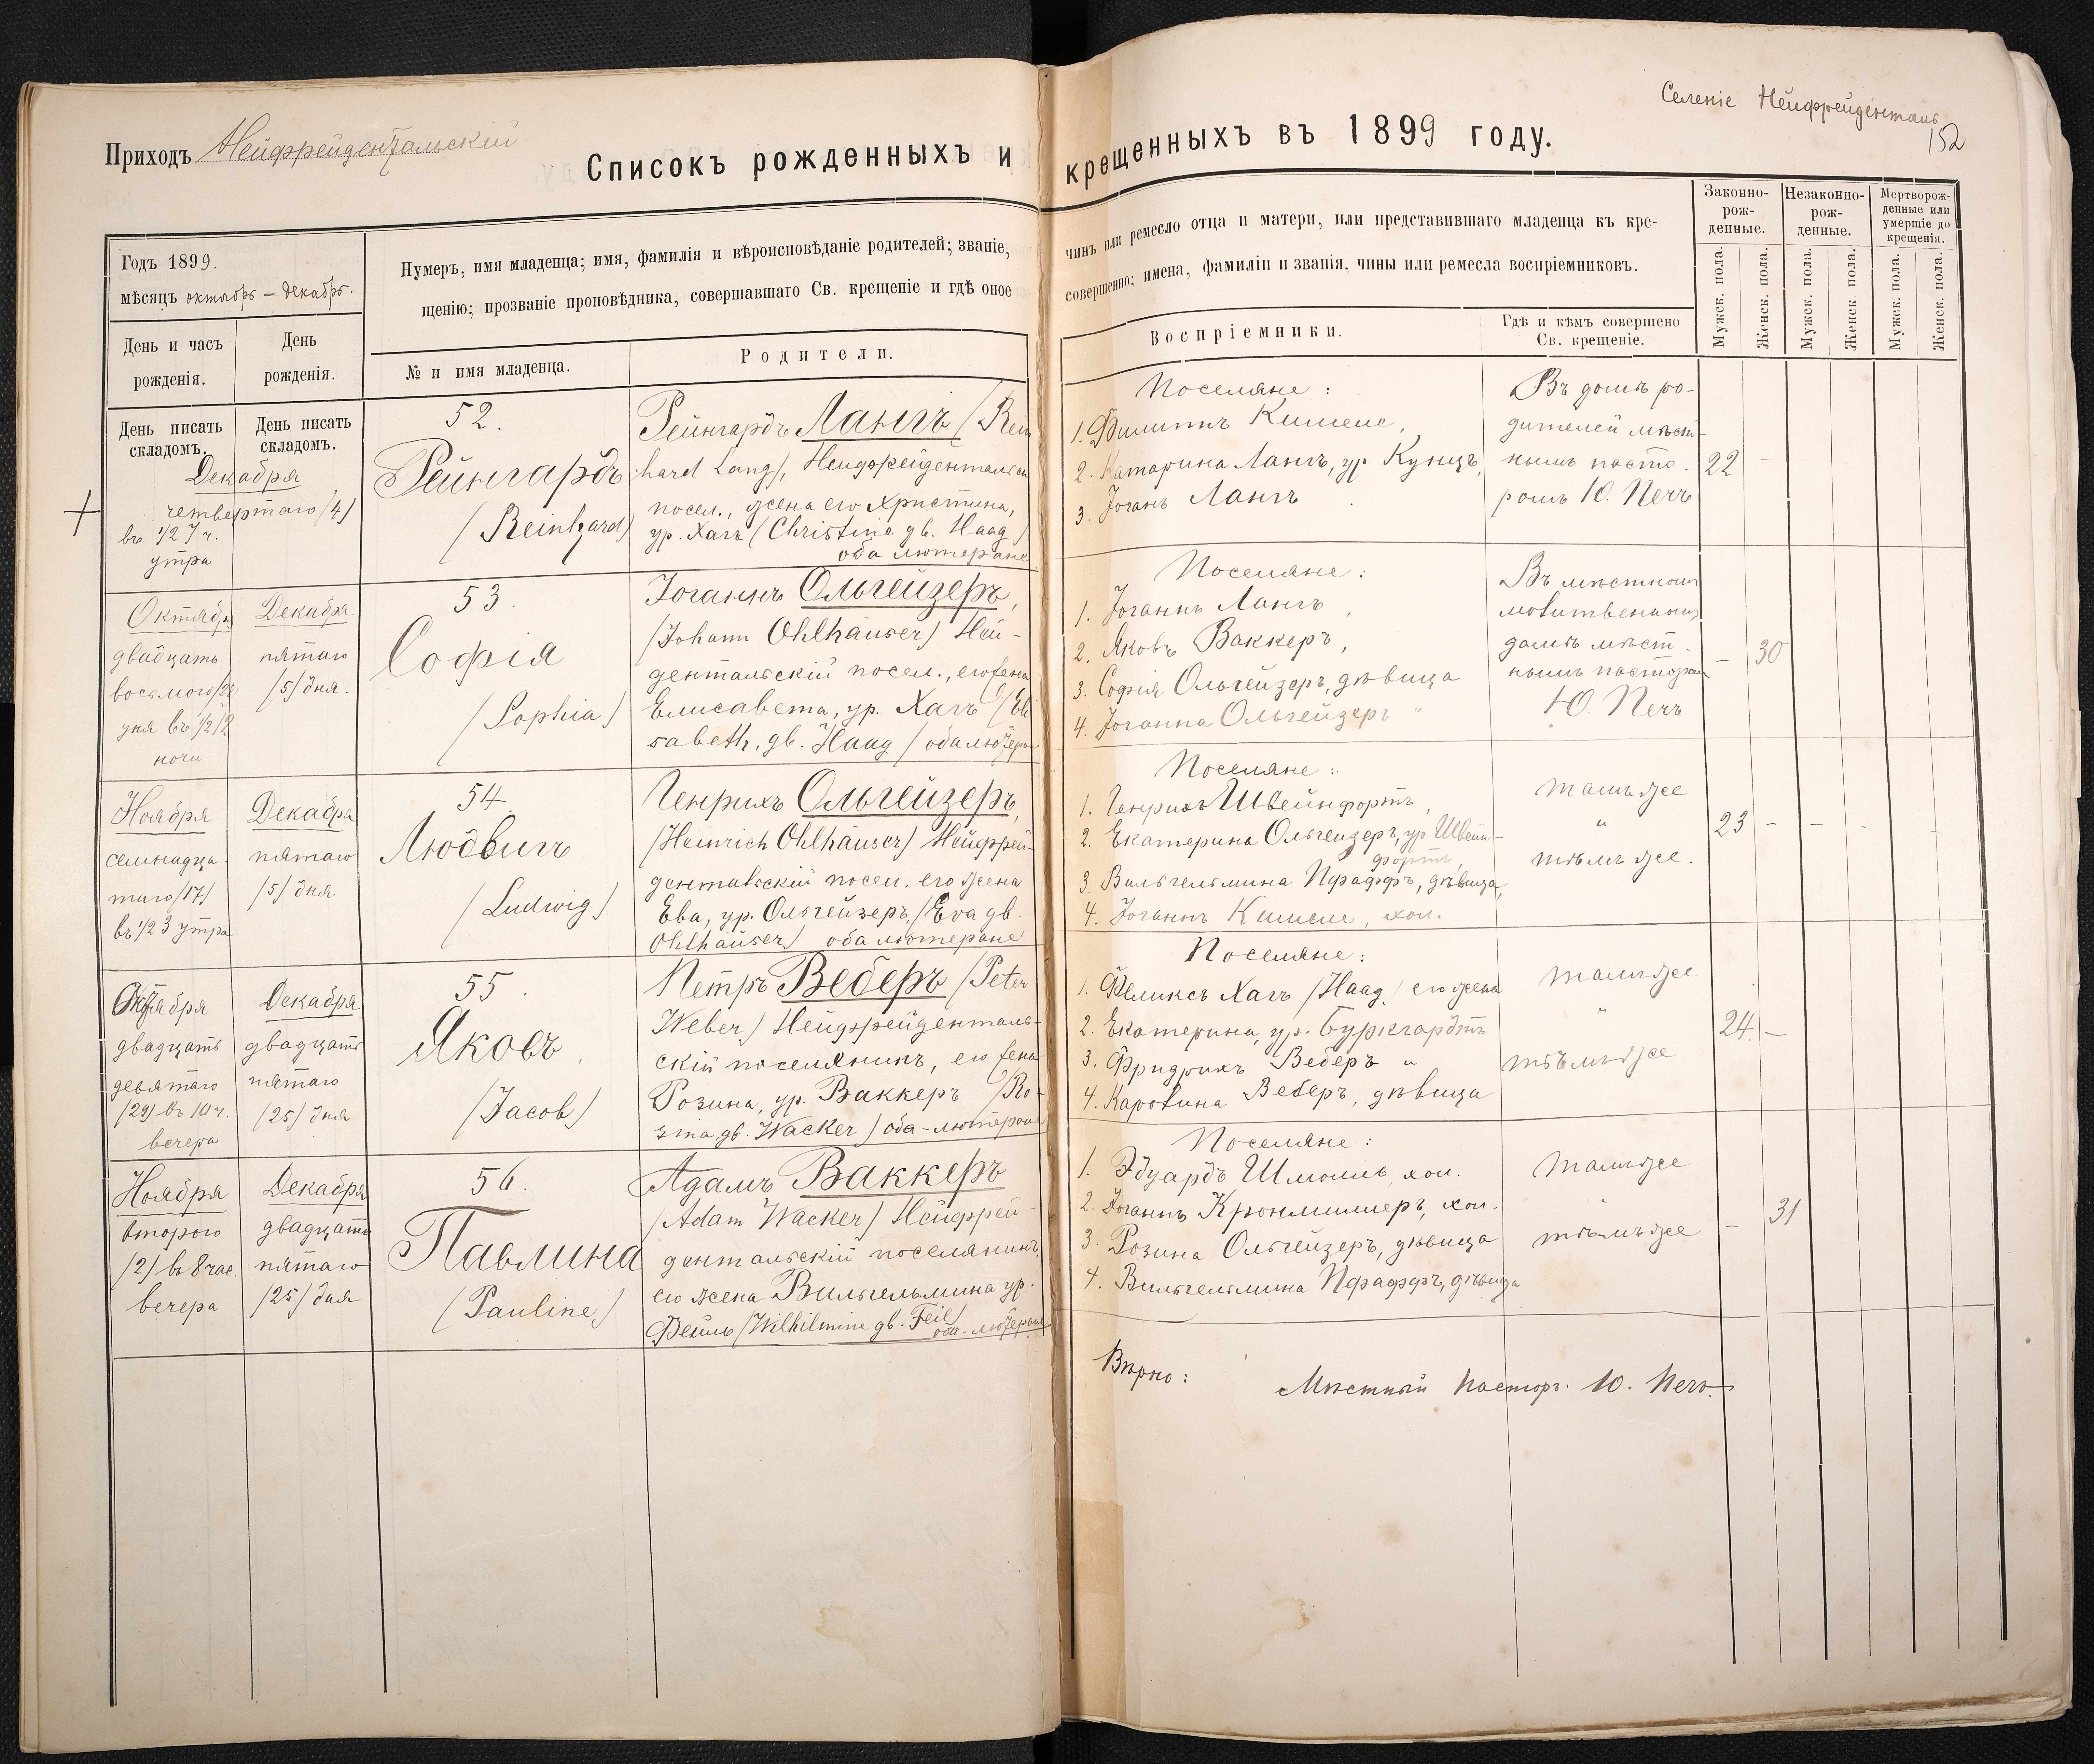 Приходъ Нейфрейдентальскій
Списокъ рожденныхъ и крещенныхъ въ 1899 году.
Селеніе Нейфрейденталь
152
Годъ 1899.
мѣсяцъ октябрь – декабрь.
Нумеръ, имя младенца; имя, фамилія и вѣроисповѣданіе родителей; званіе,
щенію; прозваніе проповѣдника, совершавшаго Св. крещеніе и гдѣ оное
День и часъ
рожденія.
День
рожденія.
№ и имя младенца.
Родители.
День писать
складомъ.
День писать
складомъ.
чинъ или ремесло отца и матери, или представившаго младенца къ кре-
совершенно; имена, фамиліи и званія, чины или ремесла воспріемниковъ.
Воспріемники.
Гдѣ и кѣмъ совершено
Св. крещеніе.
Законно-
рож-
денные.
Незаконно-
рож-
денные.
Мертворож-
денные или
умершіе до
крещенія.
Мужск. пола.
Женск. пола.
Мужск. пола.
Женск. пола.
Мужск. пола.
Женск. пола.
+
Декабря
четвертаго /4/
въ 1/2 7 ч.
утра
52.
Рейнгардъ
/Reinhard/
Рейнгардъ Лангъ /Rein
hard Lang/, Нейфрейдентальск
посел., жена его Христина,
ур. Хагъ /Christine gb. Haag/
оба лютеране
Поселяне:
1. Филиппъ Кимеле,
2. Катарина Лангъ, ур. Кунцъ,
3. Іоганъ Лангъ
Въ домѣ ро-
дителей мѣст-
нымъ пасто-
ромъ Ю. Печъ
22 –
Октября
двадцать
восьмого /28/
дня въ 1/2 12
ночи
Декабря
пятаго
/5/ дня.
53.
Софія
/Sophia/
Іоганнъ Ольгейзеръ,
/Johann Ohlhäuser/ Ней-
дентальскій посел., его жена
Елисавета, ур. Хагъ /Eli
sabeth, gb. Haag/ оба лютеран
Поселяне:
1. Іоганнъ Лангъ,
2. Яковъ Ваккеръ,
3. Софія Ольгейзеръ, дѣвица
4. Іоганна Ольгейзеръ "
Въ мѣстномъ
молитвенномъ
домѣ мѣст-
нымъ пасторомъ
Ю. Печъ
– 30
Ноября
семнадца-
таго /17/
въ 1/2 3 утра
Декабря
пятаго
/5/ дня
54
Людвигъ
/Ludwig/
Генрихъ Ольгейзеръ,
/Heinrich Ohlhäuser/ Нейфрей-
дентальскій посел. его жена
Ева, ур. Ольгейзеръ, /Eva gb.
Ohlhäuser/ оба лютеране
Поселяне:
1. Генрихъ Швейнфортъ,
2. Екатерина Ольгейзеръ, ур. Швейн-
фортъ,
3. Вильгельмина Пфаффъ, дѣвица,
4. Іоганнъ Кимеле, хол.
тамъ же
"
тѣмъ же.
23 – – - -
Октября
двадцать
девятаго
/29/ въ 10 ч.
вечера
Декабря
двадцать
пятаго
/25/ дня
55.
Яковъ
/Jacob/
Петръ Веберъ /Peter
Weber/ Нейфрейденталь-
скій поселянинъ, его жена
Розина, ур. Ваккеръ /Ro-
sina, gb. Wacker/ оба-лютеране
Поселяне:
1. Феликсъ Хагъ /Haag/ его жена
2. Екатерина, ур. Бургхардтъ
3. Фридрихъ Веберъ "
4. Каролина Веберъ, дѣвица
тамъ же
"
тѣмъ же
24. –
Ноября
второго
/2/ въ 8 час.
вечера
Декабря
двадцать
пятаго
/25/ дня
56.
Павлина
/Pauline/
Адамъ Ваккеръ
/Adam Wacker/ Нейфрей-
дентальскій поселянинъ,
его жена Вильгельмина ур.
Фейль /Wilhelmine gb. Feil/
оба-лютеране
Поселяне:
1. Эдуардъ Шмоль, хол.
2. Іоганнъ Кронмиллеръ, хол.
3. Розина Ольгейзеръ, дѣвица
4. Вильгельмина Пфаффъ, дѣвица
тамъ же
"
тѣмъ же
– 31
Вѣрно:
Мѣстный пасторъ Ю. Печъ